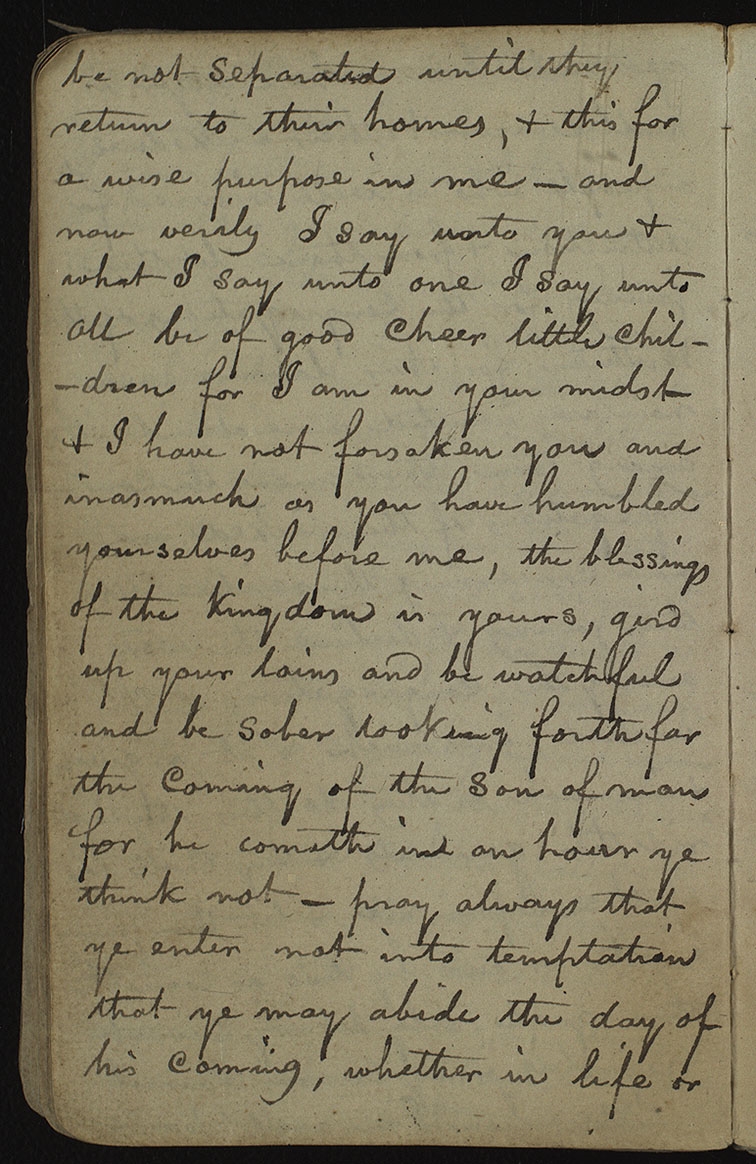 be not separated until they
return to their homes, & this for
a wise purpose in me — and
now verily I say unto you &
what I say unto one I say unto
all be of good cheer little chil-
-dren for I am in your midst
& I have not forsaken you and
inasmuch as you have humbled
yourselves before me, the blessings
of the kingdom is yours, gird
up your loins and be watchful
and be sober looking forth for
the coming of the son of man
for he cometh in an hour ye
think not — pray always that
ye enter not into temptation
that ye may abide the day of
his coming, whether in life or